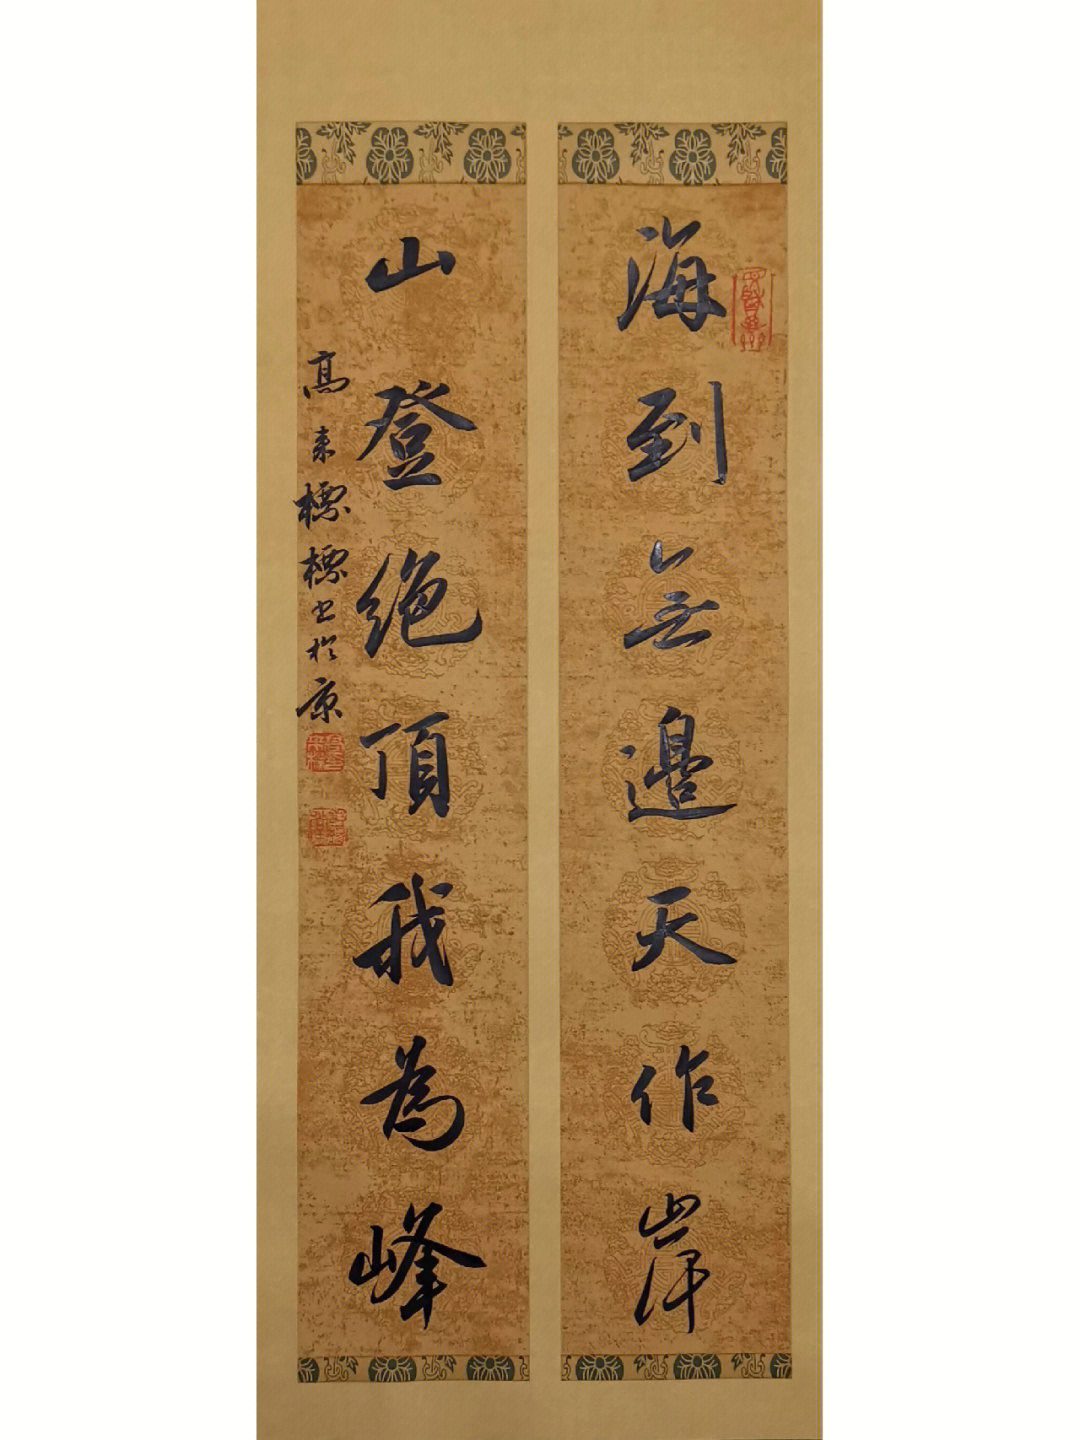 海到无邊天作岸
山登绝頂我為峰
高来標標书於京